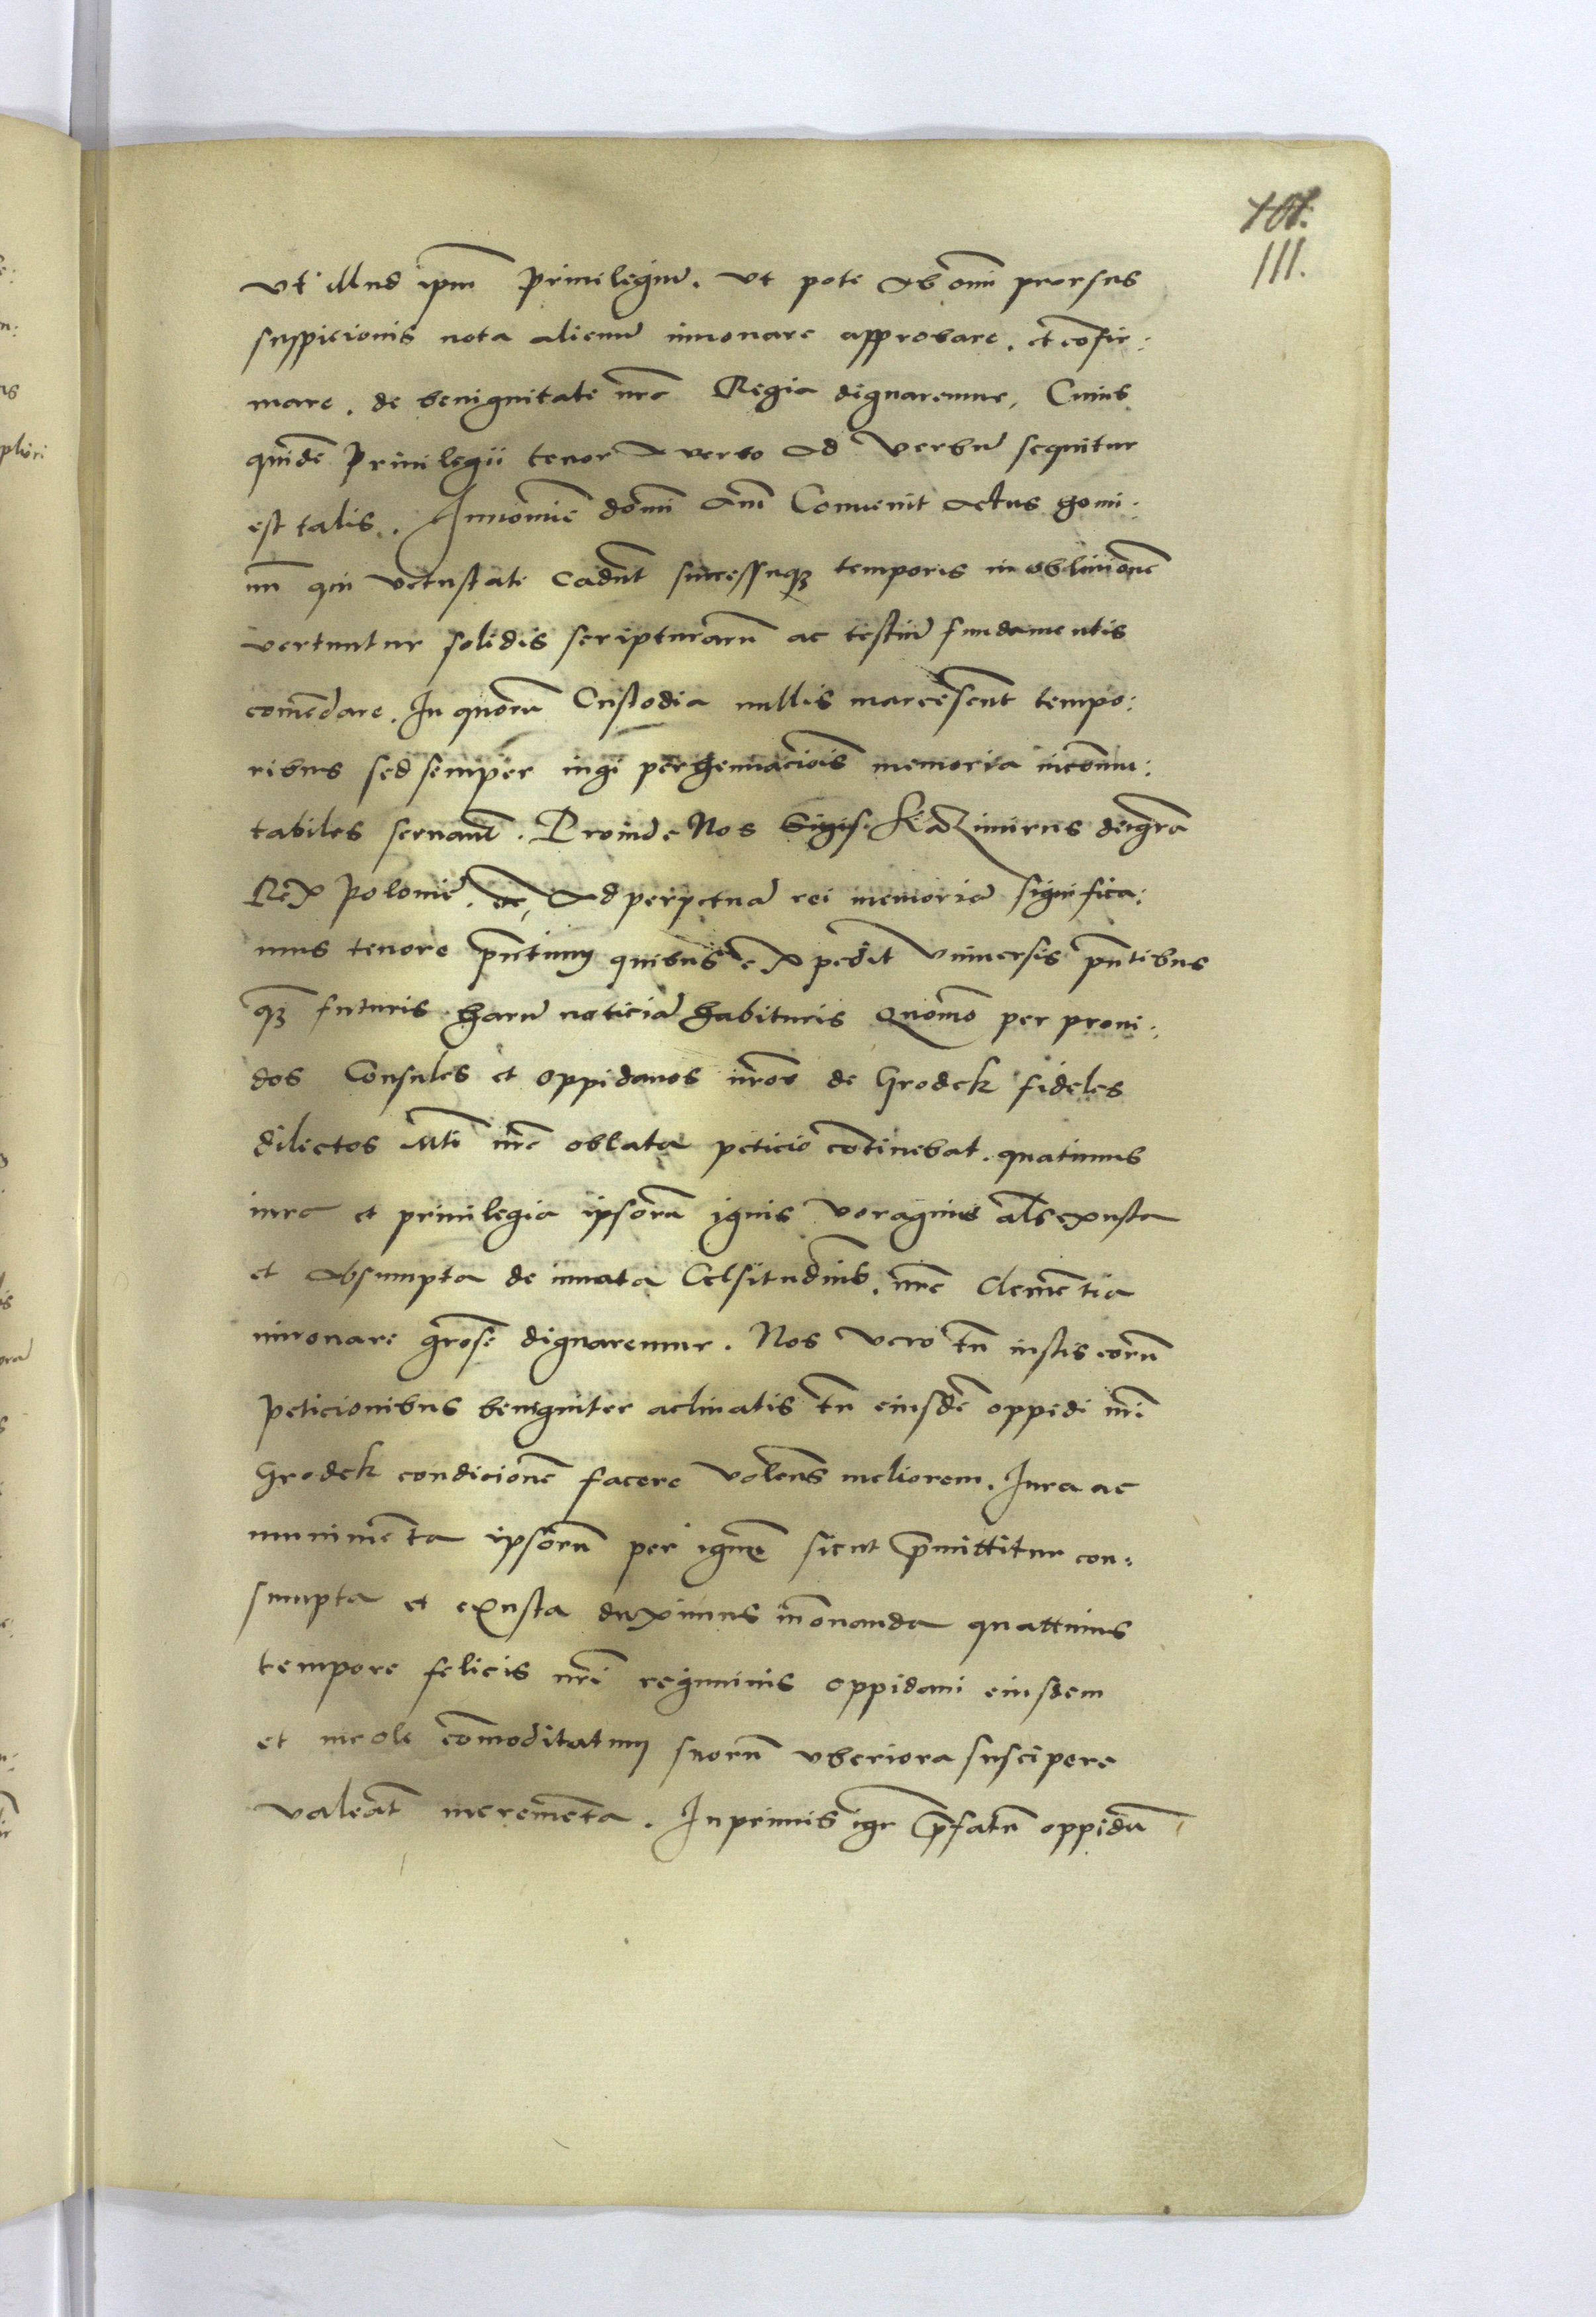 101.
111.
vt illud ipm̄ priuilegiū. vt pote ab om̄i prorsus
suspicionis nota alienū innouare approbare. et cōfir:
mare. de benignitate nrā Regia dignaremur, Cuius
quidē Priuilegii tenor a verbo ad verbū sequitur
est talis. In nomīe domī amē Conuenit actus homi:
nū qui vetustate cadūt successuqȝ temporis in obliuionē
vertuntur solidis scripturarū ac testiū fundamentis
comēdare. In quorū Custodia nullis marcescūt tempo:
ribus sed semper iugi perhennaciōis memoria incōmu:
tabiles seruant̄. Proinde Nos Sigis. Kazimirus dei grā
Rex Polonie. etc, Ad perpetuā rei memoriā significa:
mus tenore pn̄tium quibus expedit vniuersis pn̄tibus
qȝ futuris harū noticiā habituris Quōmo per proui:
dos Consules et oppidanos nrōs de Grodek fideles
dilectos Mti nrē oblata peticio cōtinebat. quatinus
iura et priuilegia ipsorū ignis voragine al̄s exusta
et absumpta de innata Celsitudinis. nrē clemētia
innouare grōse dignaremur. Nos vero tū iustis eorū
peticionibus benigniter aclinatis tū eiusdē oppidi nrī
Grodek condicionē facere volens meliorem. Iura ac
munimēta ipsorū per ignē sicut p̄mittitur con:
sumpta et exusta duximus īnouanda quattinus
tempore felicis nrī regiminis oppidani eiusdem
et incole cōmoditatum suorū vberiora suscipere
valeāt incremēta. Inprimis igr̄ p̄fatū oppidū